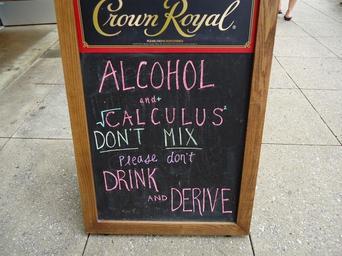 Crown Royal
ALCOHOL
and
√CALCULUS²
DON'T MIX
Please don't
DRINK
AND DERIVE